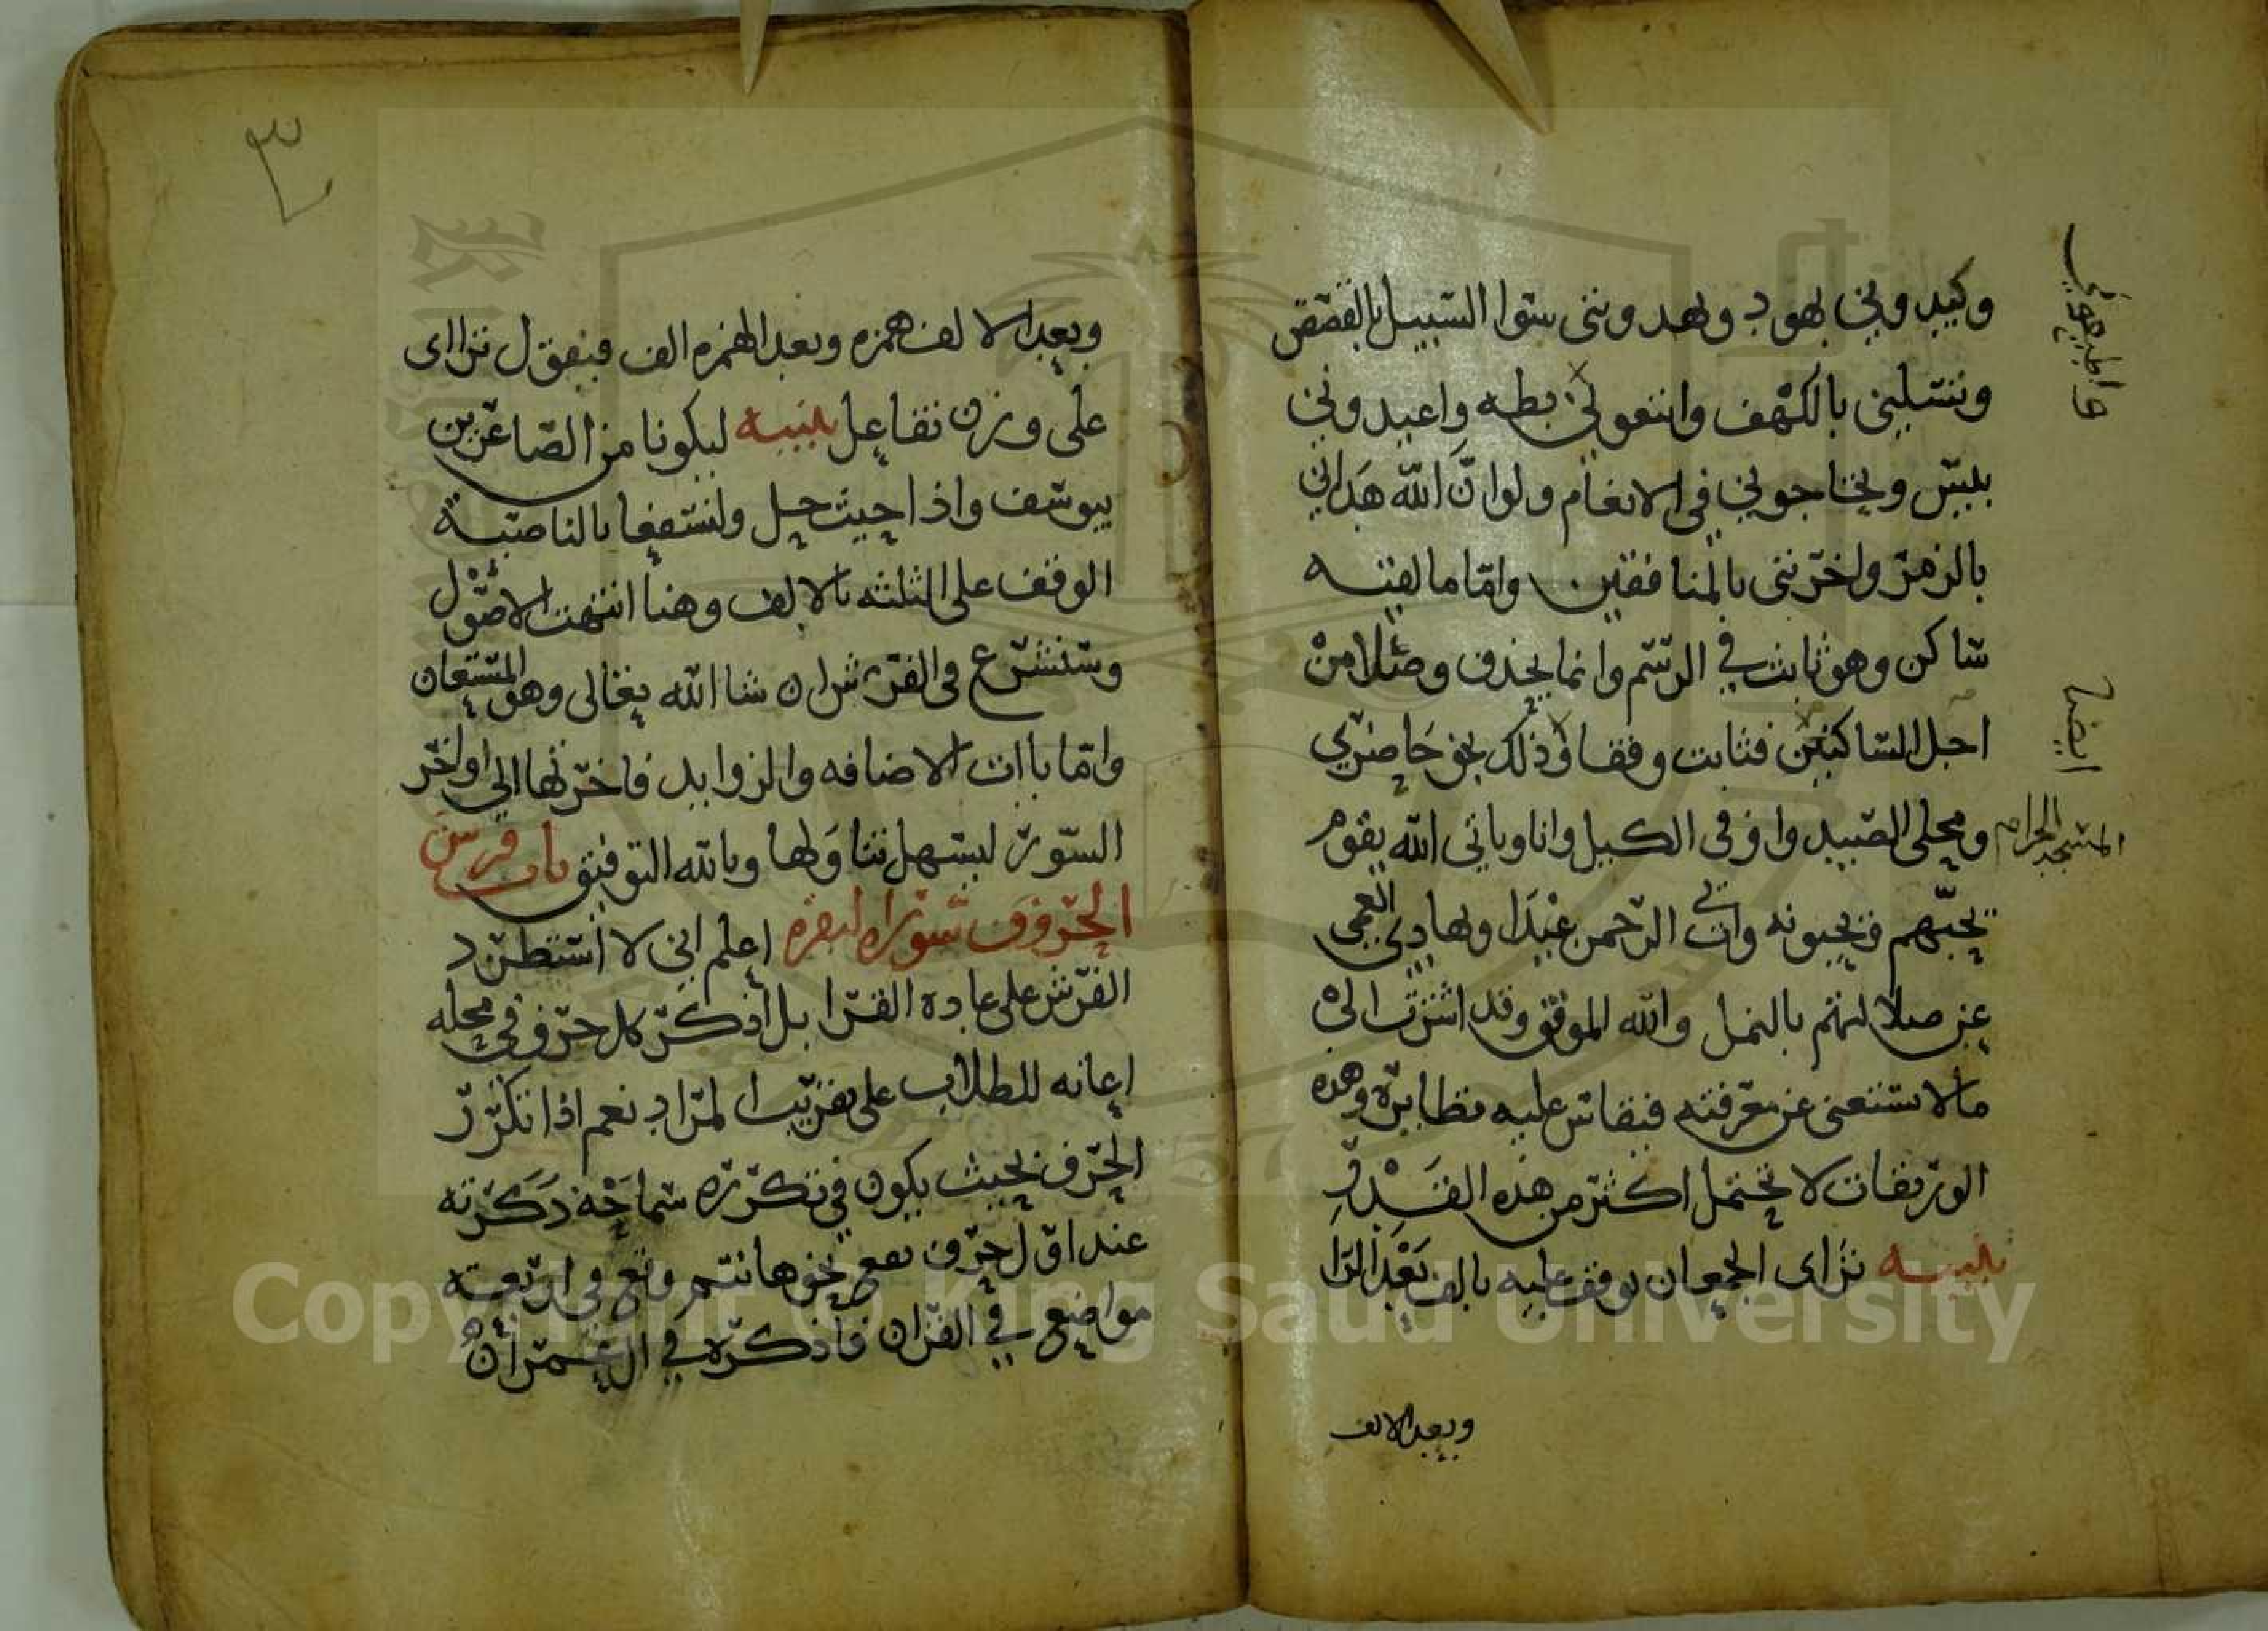 وكيدوني بهود ويهديني سوا السبيل بالقصص
وتسئلني بالكهف واتبعوني بطه واعبدوني
بيس وتحاجوني في الانعام ولو ان الله هداني
بالزمر واخرتني بالمنافقين واما ما لقيه
ساكن وهو ثابت في الرسم وانما يحذف وصلا من
اجل الساكنين فثابت وقفا وذلك نحو حاضري
المسجد الحرام ومحلي الصيد واوفي الكيل وانا وياتي الله بقوم
يحبهم ويحبونه واتي الرحمن عبدا وبهادي العمي
عن ضلالتهم بالنمل والله الموفق وقد اشرت الى
ما لا يستغنى عن معرفته فيقاس عليه نظايره وهذه
الوريقات لا تحتمل اكثر من هذه القدر
تنبيه تراى الجمعان يوقف عليه بالف بعد الرا
وبعد الالف
واطيعون
ايضا
٣
وبعد الالف همزه وبعد الهمزه الف فيقول ترااى
على وزن تفاعل تنبيه ليكونا من الصاغرين
بيوسف واذا حيث حل ولنسفعا بالناصية
الوقف على الثلثه بالالف وهنا انتهت الاصول
وسنشرع في الفرش ان شا الله تعالى وهو المستعان
واما ياات الاضافه والزوايد فاخرتها الى اواخر
السور ليسهل تناولها وبالله التوفيق باب فرش
الحروف سورة البقره اعلم اني لا استطرد
الفرش على عادة القرا بل اذكر كل حرف في محله
اعانه للطلاب على تقريب المراد نعم اذا تكرر
الحرف بحيث يكون في تكرره سماجه ذكرته
عند اول حرف يقع نحو هانتم وقع في اربعة
مواضع في القران فاذكره في ال عمران